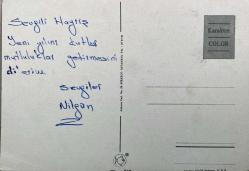 Sevgili Hayriş
Yeni yılını kutlar
mutluluklar getirmesini
dilerim
Sevgiler
Nilgün
Karakter
COLOR